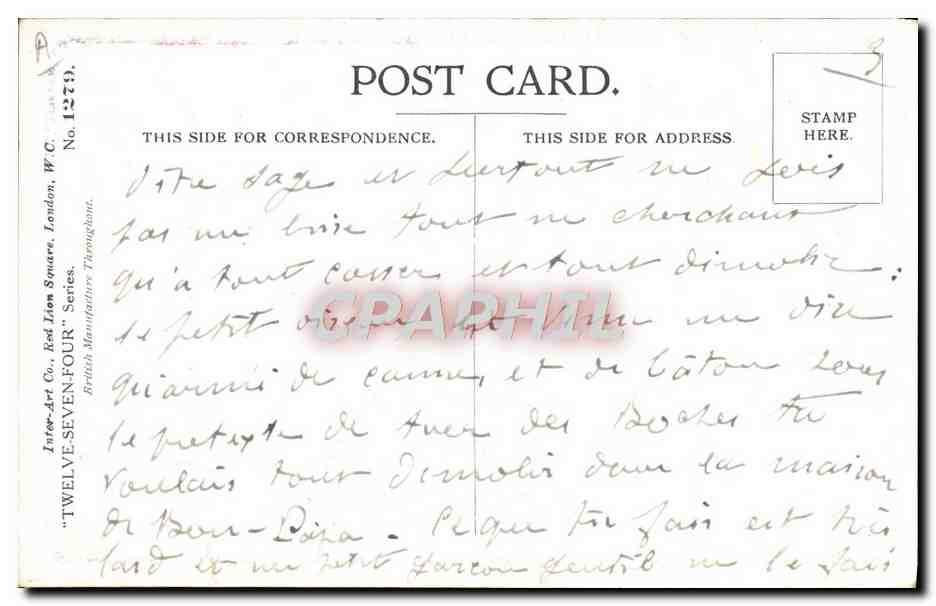 A
3
POST CARD.
THIS SIDE FOR CORRESPONDENCE.
THIS SIDE FOR ADDRESS
STAMP
HERE.
Inter-Art Co., Red Lion Square, London, W.C.
"TWELVE-SEVEN-FOUR" Series.
No. 1279.
British Manufacture Throughout.
être sage et surtout ne sois
pas un brise tout ne cherchant
qu'à tout casser et tout démolir:
le petit oiseau est venu me dire
qu'armé de canne, et de bâton sous
le pretexte de tuer des Boches tu
voulais tout démolir dans la maison
de Bon-Papa - Ce que tu fais est très
laid et un petit garçon gentil ne le fais
CPARPHIL